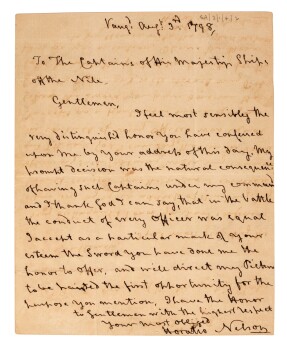 Vangd. Augt. 3rd. 1798,
To The Captains of His Majestys Ships
off the Nile.
Gentlemen,
I feel most sensibly the
very distinguish'd honor you have confered
upon me by your address of this day, My
prompt decision was the natural consequence
of having such Captains under my command
and I thank God I can say, that in the Battle
the conduct of every Officer was equal
I accept as a particular mark of your
esteem the Sword you have done me the
honor to offer, and will direct my Picture
to be painted the first opportunity for the
purpose you mention, I have the Honor
to Gentlemen with the highest respect
Your most obliged
Horatio Nelson